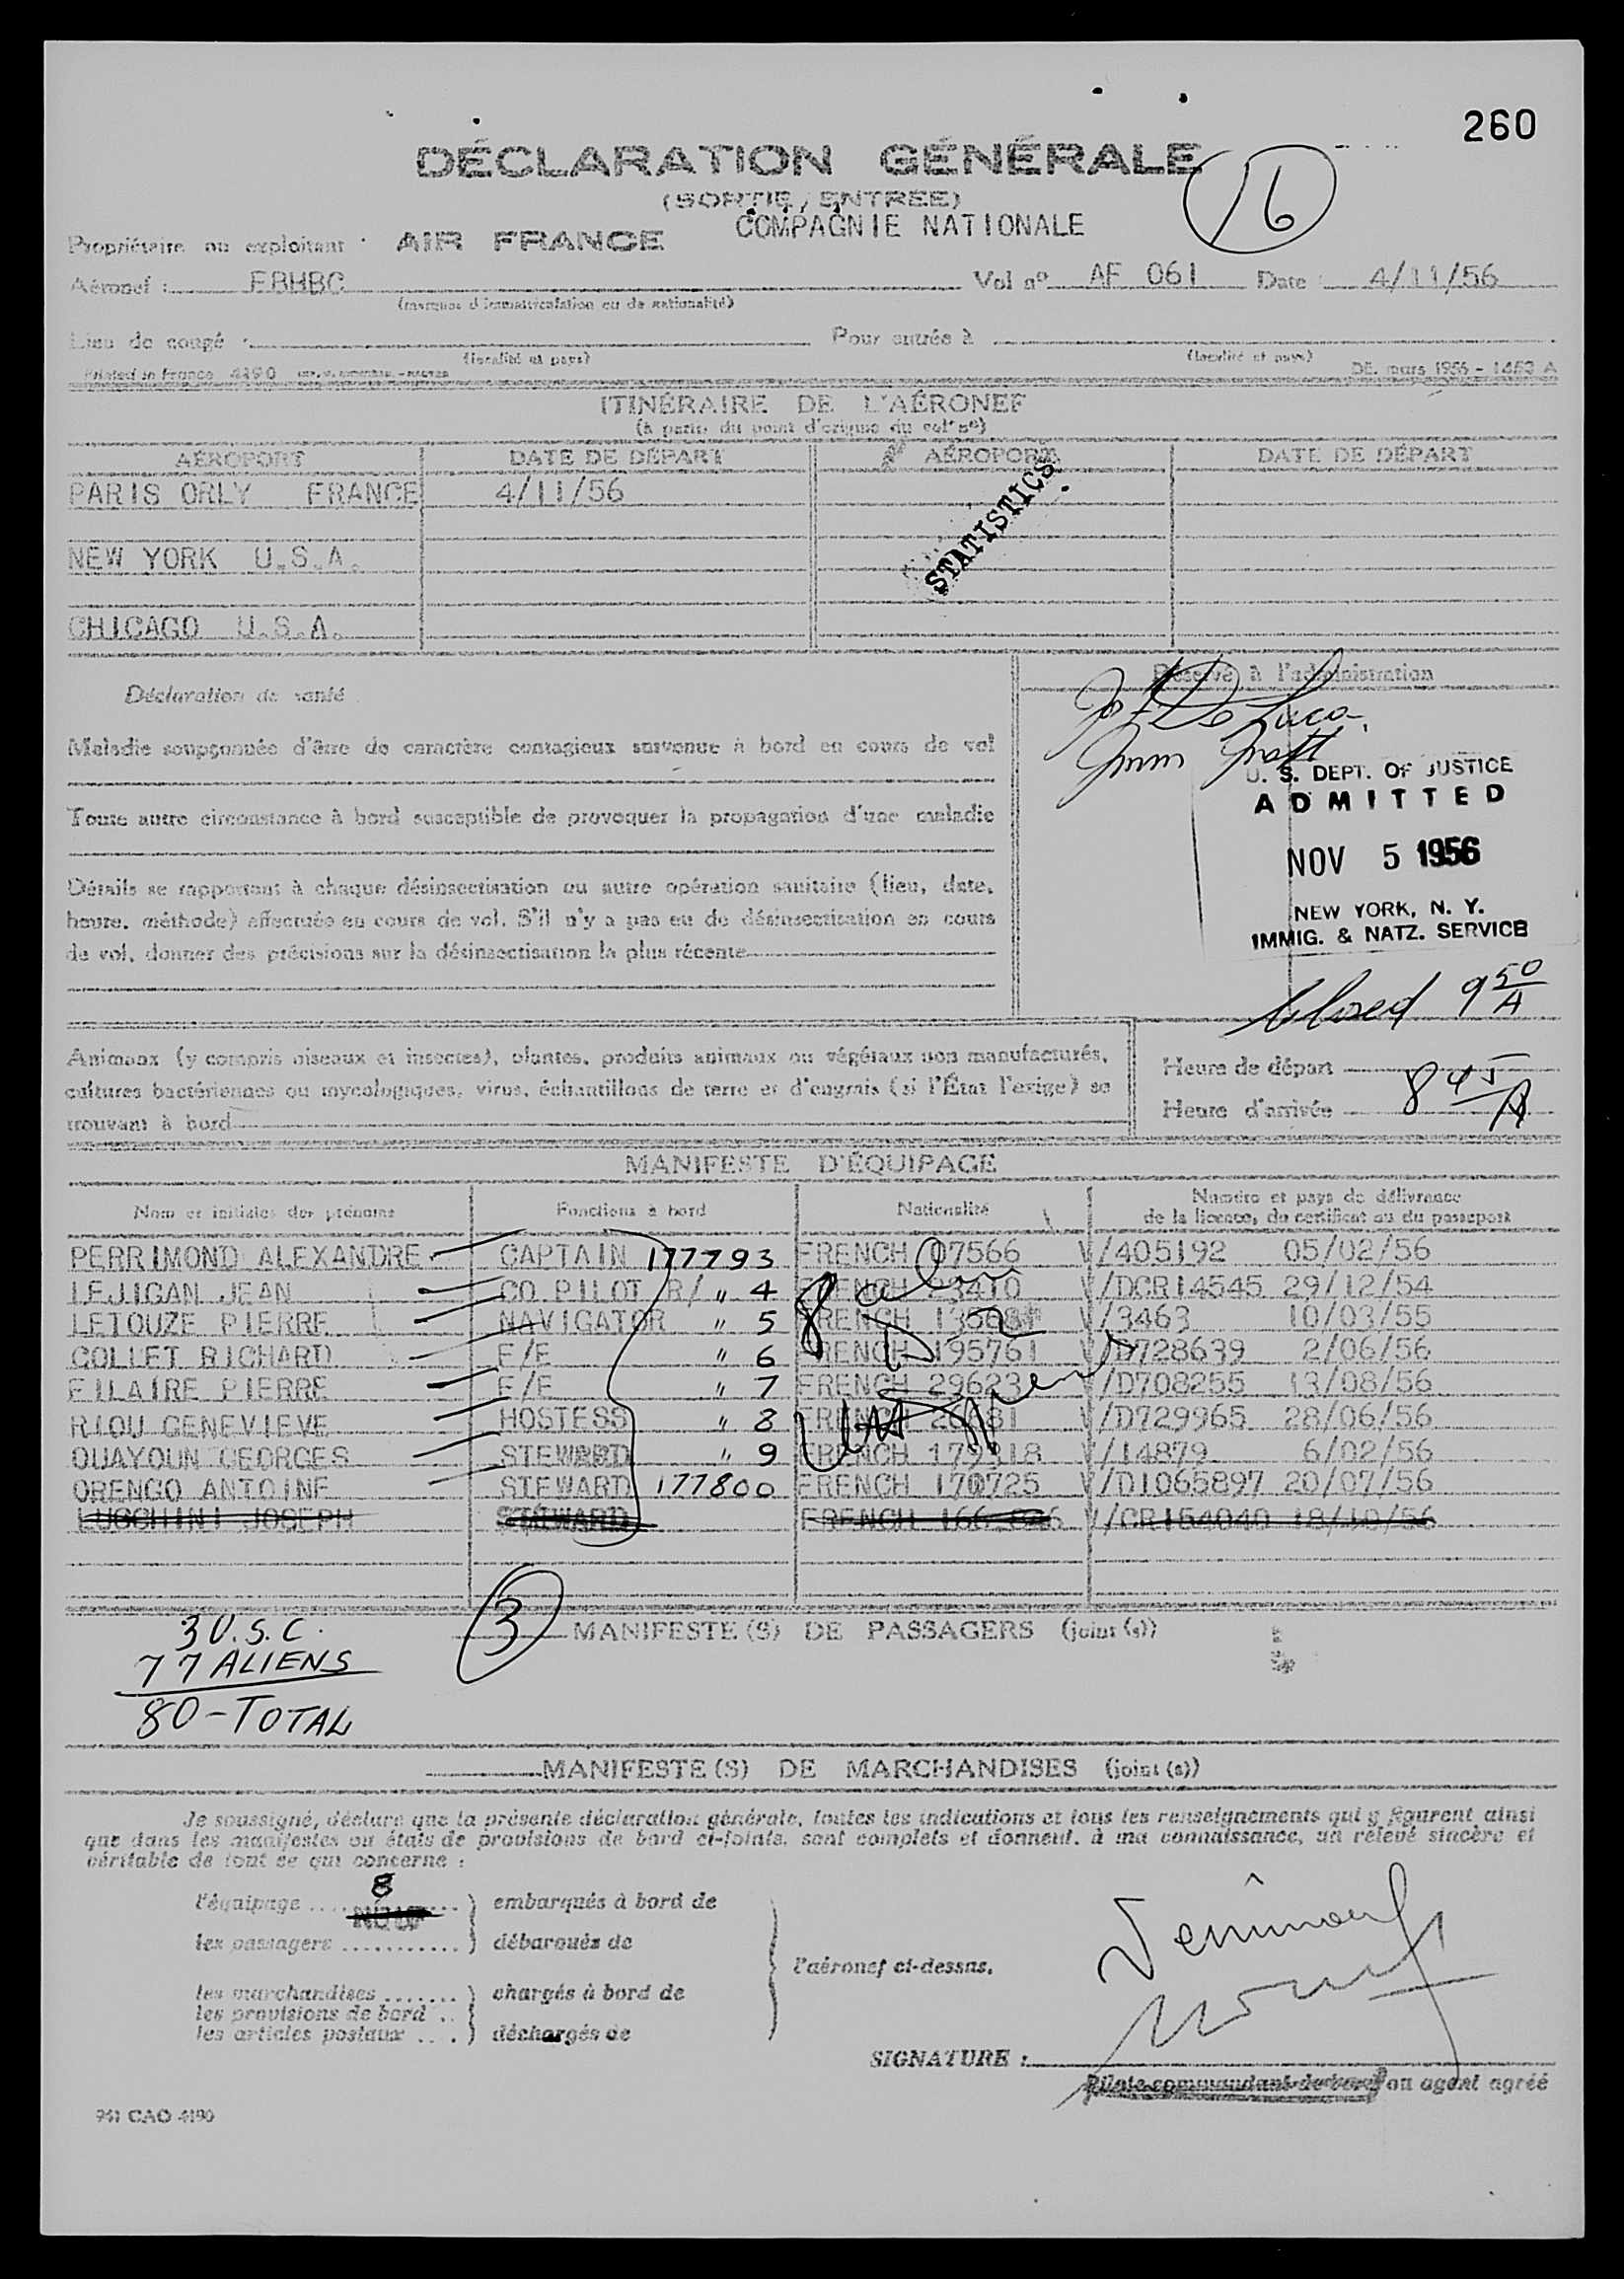 260
DÉCLARATION GÉNÉRALE
16
(SORTIE / ENTRÉE)
COMPAGNIE NATIONALE
Propriétaire ou exploitant : AIR FRANCE
Aéronef : FBHBC Vol nº AF 061 Date : 4/11/56
(marques d'immatriculation ou de nationalité)
Lieu de congé : Pour entrée à
(localité et pays) (localité et pays)
Printed in France 4490 DE. mars 1956 - 1453 A
ITINÉRAIRE DE L'AÉRONEF
(à partir du point d'origine du vol nº)
AÉROPORT DATE DE DÉPART AÉROPORT DATE DE DÉPART
PARIS ORLY FRANCE 4/11/56
STATISTICS.
NEW YORK U.S.A.
CHICAGO U.S.A.
Réservé à l'administration
Déclaration de santé
Maladie soupçonnée d'être de caractère contagieux survenue à bord en cours de vol
U. S. DEPT. OF JUSTICE
ADMITTED
Toute autre circonstance à bord susceptible de provoquer la propagation d'une maladie
NOV 5 1956
Détails se rapportant à chaque désinsectisation ou autre opération sanitaire (lieu, date,
heure, méthode) effectuée en cours de vol. S'il n'y a pas eu de désinsectisation en cours
de vol, donner des précisions sur la désinsectisation la plus récente
NEW YORK, N. Y.
IMMIG. & NATZ. SERVICE
Closed 9 50/A
Animaux (y compris oiseaux et insectes), plantes, produits animaux ou végétaux non manufacturés,
cultures bactériennes ou mycologiques, virus, échantillons de terre et d'engrais (si l'État l'exige) se
trouvant à bord
Heure de départ
Heure d'arrivée 8 45/A
MANIFESTE D'ÉQUIPAGE
Nom et initiales des prénoms Fonctions à bord Nationalité Numéro et pays de délivrance
de la licence, du certificat ou du passeport
PERRIMOND ALEXANDRE CAPTAIN 177793 FRENCH 07566 V/405192 05/02/56
LEJIGAN JEAN CO PILOT R/ " 4 FRENCH 23410 V/DCR14545 29/12/54
LETOUZE PIERRE NAVIGATOR " 5 FRENCH V/3463 10/03/55
COLLET RICHARD " 6 FRENCH 195761 V/D728639 2/06/56
FILAIRE PIERRE " 7 FRENCH 29623 V/D708255 13/08/56
RIOU GENEVIEVE HOSTESS " 8 FRENCH V/D729965 28/06/56
OUAYOUN GEORGES STEWARD " 9 FRENCH 179318 V/14879 6/02/56
ORENGO ANTOINE STEWARD 177800 FRENCH 170725 V/D1065897 20/07/56
LUCCHINI JOSEPH STEWARD FRENCH V/CR154040 18/10/56
3 U.S.C.
77 ALIENS
80 - TOTAL
3 MANIFESTE (S) DE PASSAGERS (joint (s))
MANIFESTE (S) DE MARCHANDISES (joint (s))
Je soussigné, déclare que la présente déclaration générale, toutes les indications et tous les renseignements qui y figurent ainsi
que dans les manifestes ou états de provisions de bord ci-joints, sont complets et donnent, à ma connaissance, un relevé sincère et
véritable de tout ce qui concerne :
8
l'équipage embarqués à bord de
les passagers débarqués de
l'aéronef ci-dessus.
les marchandises chargés à bord de
les provisions de bord
les articles postaux déchargés de
SIGNATURE :
Pilote commandant de bord ou agent agréé
941 CAO 4190